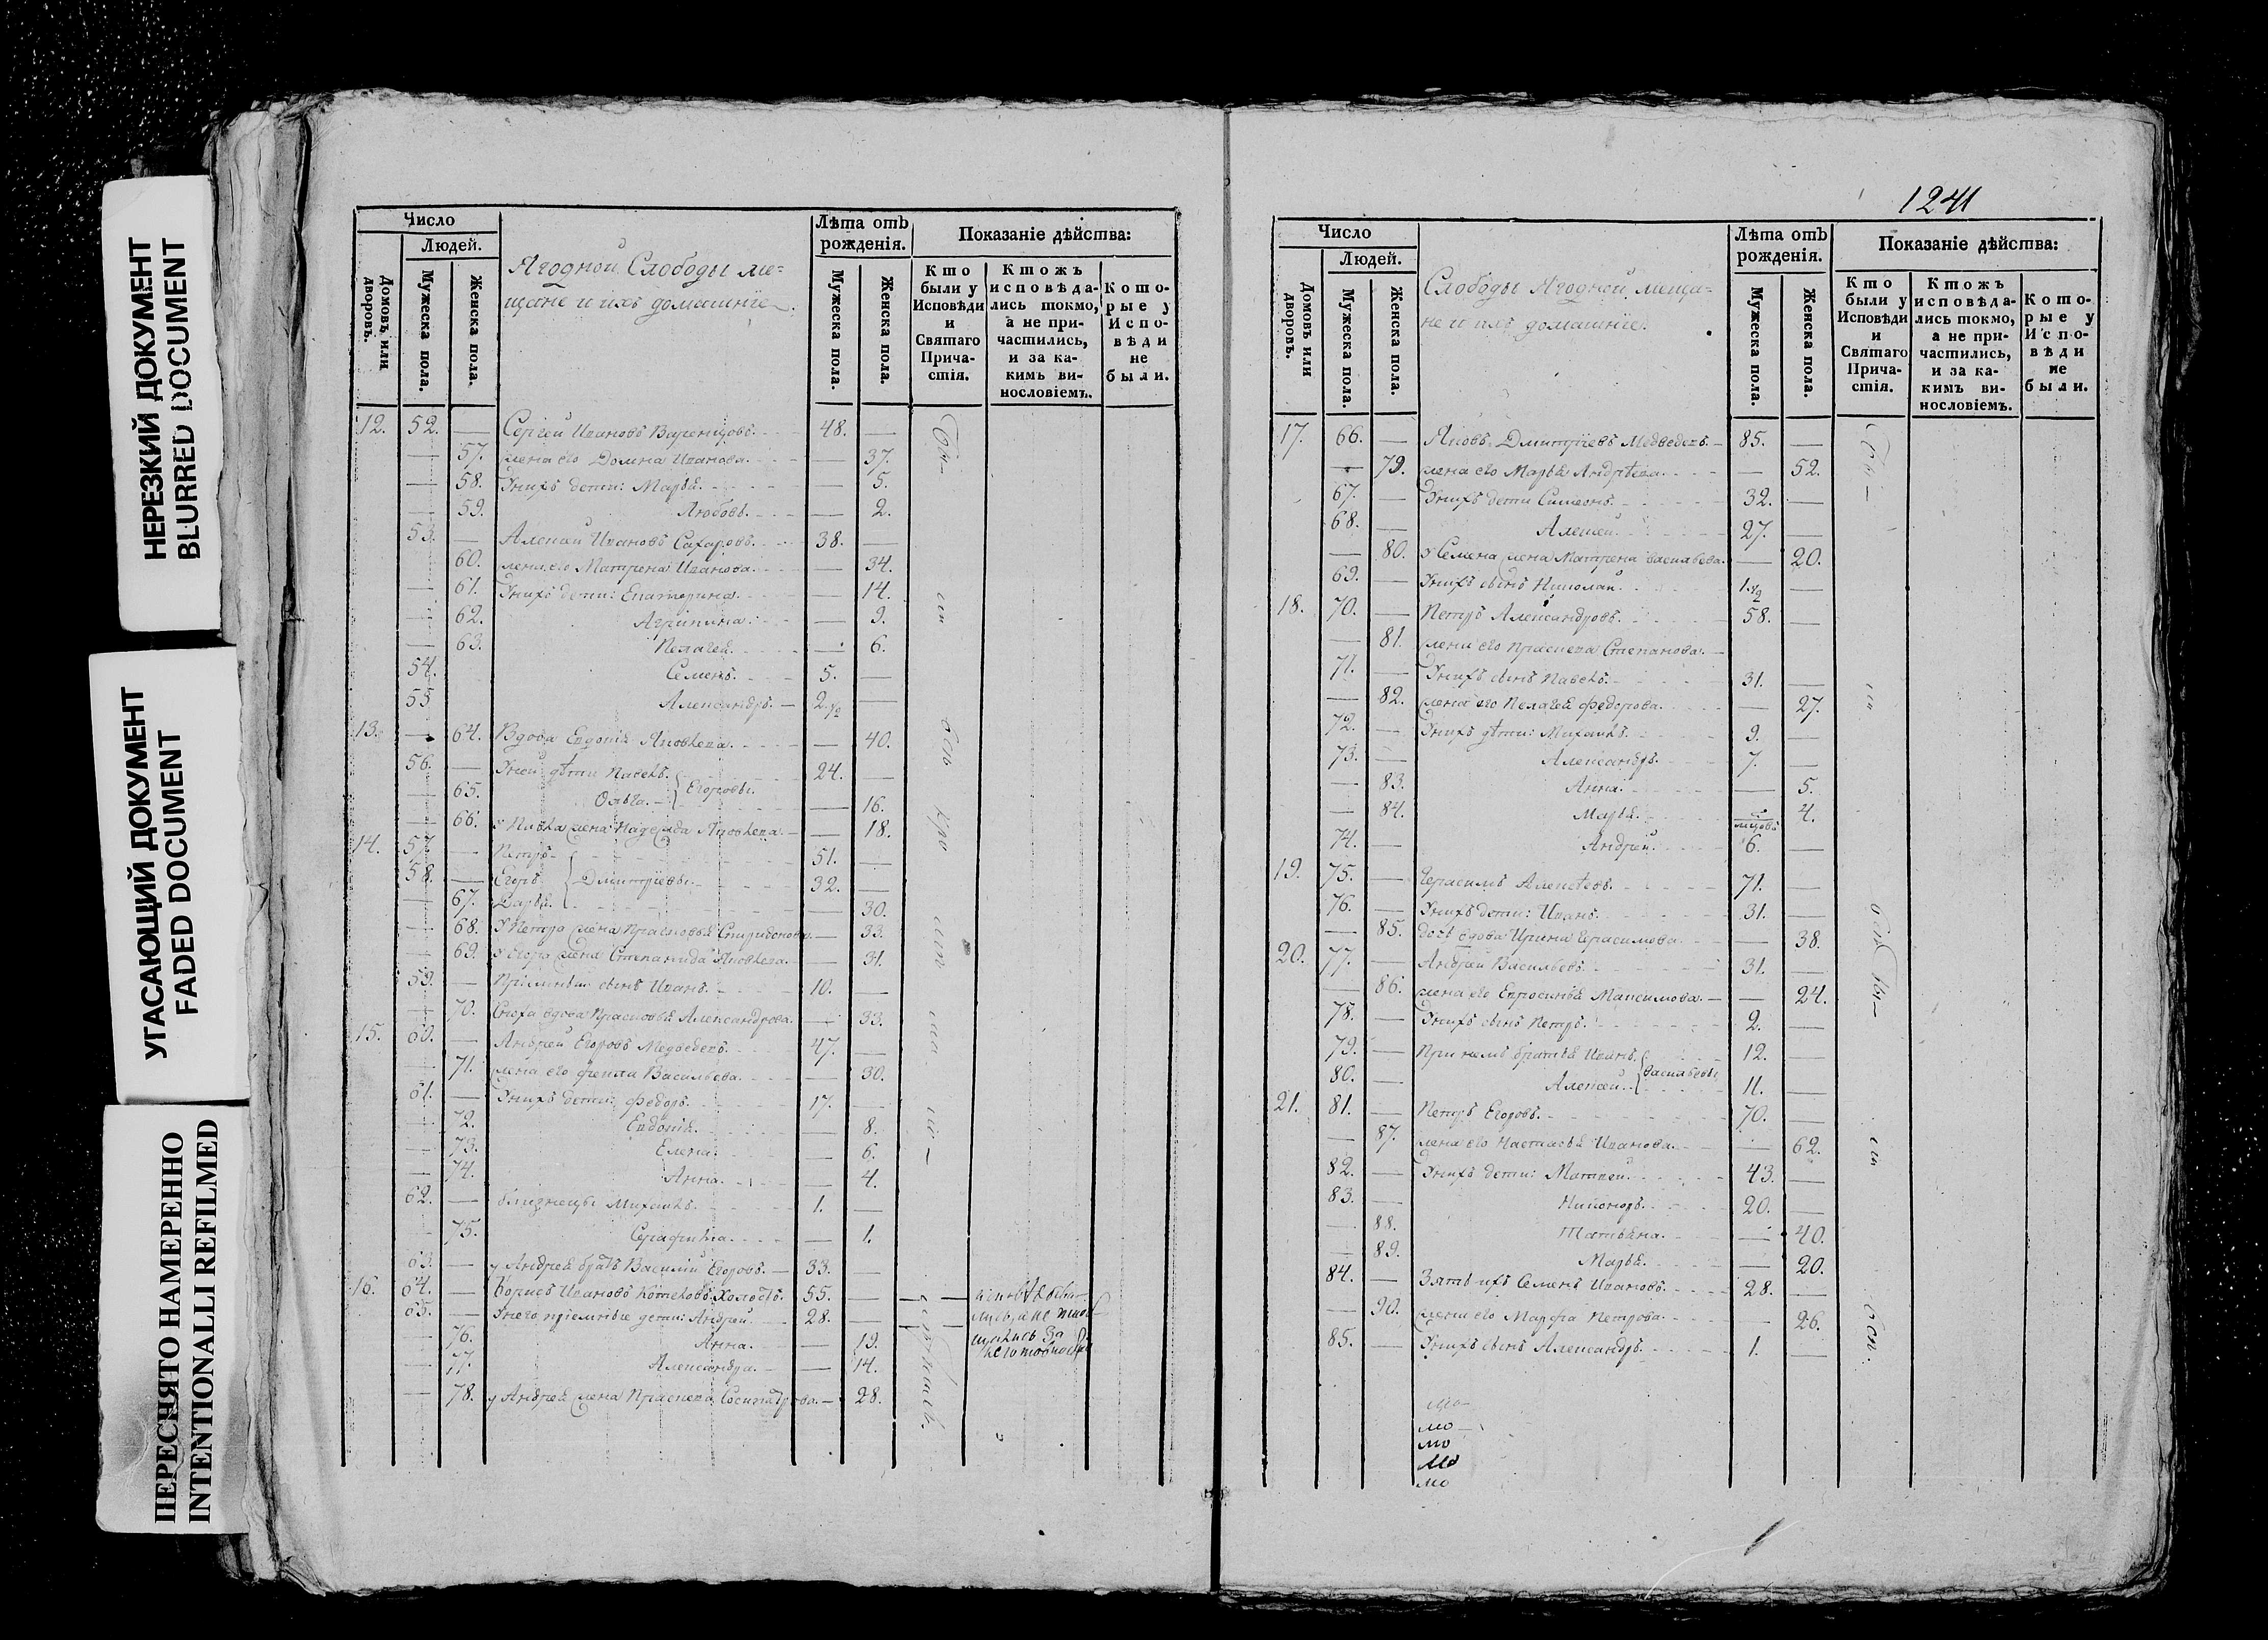 НЕРЕЗКИЙ ДОКУМЕНТ
BLURRED DOCUMENT
УГАСАЮЩИЙ ДОКУМЕНТ
FADED DOCUMENT
ПЕРЕСНЯТО НАМЕРЕННО
INTENTIONALLI REFILMED
Число
Людей.
Домовъ или дворовъ.
Мужеска пола.
Женска пола.
Ягодной Слободы ме=
щане и ихъ домашніе
Лѣта отъ рожденія.
Мужеска пола.
Женска пола.
Показаніе дѣйства:
Кто были у Исповѣди и Святаго Прича-стія.
Ктожъ исповѣда-лись токмо, а не при-частились, и за ка-кимъ ви-нословіемъ.
Кото-рые у Испо-вѣди не были.
12. 52. — Сергей Ивановъ Варенцовъ. 48. —
— 57. жена его Домна Иванова. — 37.
— 58. У нихъ дети: Марья. — 5.
— 59. Любовь. — 2.
53. — Алексей Ивановъ Сахаровъ. 38. —
60. жена его Матрена Иванова. — 34.
— 61. У нихъ дети: Екатерина. — 14.
62. Агрипина. — 9.
— 63. Пелагея. — 6.
54. Семенъ. 5. —
55 Александръ. 2 1/2 —
13. — 64. Вдова Евдокія Яковлева. — 40.
56. — У ней дѣти Павелъ. 24. —
— 65. Ольга. Егоровы. — 16.
— 66. у Павла жена Надежда Яковлева. — 18.
14. 57 — Петръ 51. —
58. — Егоръ Дмитріевы. 32. —
— 67. Дарья. — 30.
— 68. У Петра жена Прасковья Спиридонова — 33.
— 69. У Егора жена Степанида Яковлева. — 31.
59. — Пріемышъ сынъ Иванъ. 10. —
— 70. Сноха вдова Прасковья Александрова. — 33.
15. 60. — Андрей Егоровъ Медведевъ. 47. —
— 71. жена его Фекла Васильева. — 30.
61. — У нихъ дети: Федоръ. 17. —
— 72. Евдокія. — 8.
— 73. Елена. — 6.
— 74. Анна. — 4.
62. — близнецы Михаилъ. 1. —
— 75. Серафима. — 1.
63. — у Андрея братъ Василій Егоровъ. 33. —
16. 64. — Борисъ Ивановъ Котеловъ. Холостъ. 55. —
65. — У него пріемные дети: Андрей 28. —
— 76. Анна. — 19.
— 77. Александра. — 14.
— 78. у Андрея жена Прасковья — 28.
1241
Число
Людей.
Домовъ или дворовъ.
Мужеска пола.
Женска пола.
Слободы Ягодной меща=
не и ихъ домашніе.
Лѣта отъ рожденія.
Мужеска пола.
Женска пола.
Показаніе дѣйства:
Кто были у Исповѣди и Святаго Прича-стія.
Ктожъ исповѣда-лись токмо, а не при-частились, и за ка-кимъ ви-нословіемъ.
Кото-рые у Испо-вѣди не были.
17. 66. — Яковъ Дмитріевъ Медведевъ. 85. —
— 79. жена его Марья Андрѣева. — 52.
67. — У нихъ дети Симеонъ. 32. —
68. — Алексей. 27. —
— 80. У Семена жена Матрена Васильева. — 20.
69. — У нихъ сынъ Николай. 1 1/2 —
18. 70. — Петръ Александровъ. 58. —
— 81. жена его Праскева Степанова. —
71. — У нихъ сынъ Павелъ. 31. —
— 82. жена его Пелагея Федорова. — 27.
72. — У нихъ дѣти: Михаилъ. 9. —
73. — Александръ. 7. —
— 83. Анна. — 5.
— 84. Марья. 4.
74. — Андрей. 6. —
19. 75. — Герасимъ Алексѣевъ. 71. —
76. — У нихъ дети: Иванъ. 31. —
— 85. дочь вдова Ирина Герасимова. — 38.
20. 77. — Андрей Васильевъ. 31. —
— 86. жена его Евросинья Максимова. — 24.
78. — У нихъ сынъ Петръ. 2. —
79. — При немъ братья Иванъ. 12. —
80. — Алексей. Васильевы 11. —
21. 81. — Петръ Егоровъ. 70. —
— 87. жена его Настасья Иванова. — 62.
82. — У нихъ дети: Матвей. 43. —
83. — Никоноръ. 20. —
— 88. Татьяна. — 40.
— 89. Марья. — 20.
84. — Зять ихъ Семенъ Ивановъ. 28. —
— 90. жена его Марфа Петрова. — 26.
85. — У нихъ сынъ Александръ. 1. —
мо
мо
мо
мо
мо